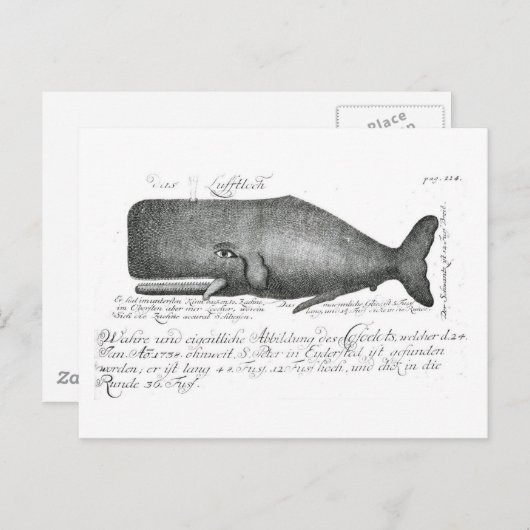 Place
Das Lufftloch
pag. 224.
Er hat im untersten
im Obersten aber nur Löcher, worin
Sich die Zaehne accurat Schliessen.
Das maennliche Glied ist 5 Fuss
lang, und
Der Schwantz ist 12 Fus Breit.
Wahre und eigentliche Abbildung des Casoelots, welcher d. 24.
Jan. Ao. 1734. ohnweit S. Peter in Eydersted, ist gefunden
worden; er ist lang 42. Fuss. 12 Fuss hoch, und dick in die
Runde 36. Fuss.
Za